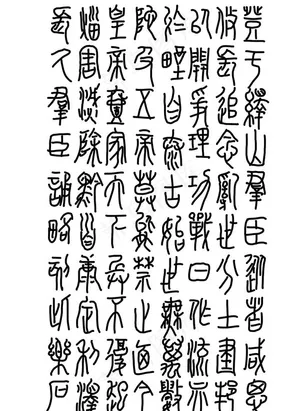 登于繹山羣臣從者咸思
攸長追念亂世分土建邦
以開爭理功戰日作流血
於野自泰古始世無萬數
陀及五帝莫能禁止廼今
皇帝壹家天下兵不復起
災害滅除黔首康定利澤
長久羣臣誦略刻此樂石